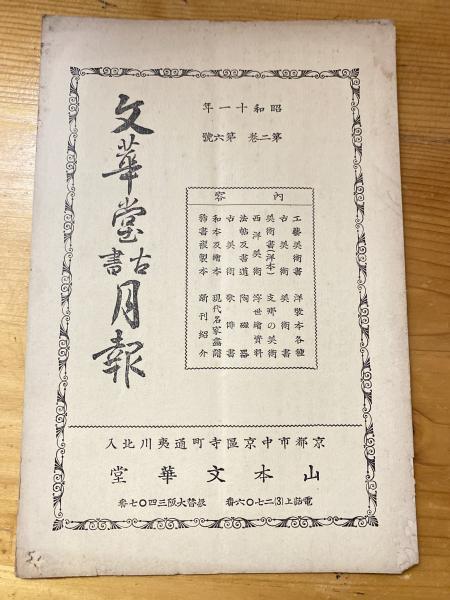 昭和十一年
第二卷 第六號
文華堂古書月報
內容
工藝美術書 洋裝本各種
古美術 美術書
美術書(洋本) 支那の美術
西洋美術 浮世繪資料
法帖及書道 陶磁器
古美術 歌俳書
和本及繪本 現代名家畫譜
稀書複製本 新刊紹介
京都市中京區寺町通夷川北入
山本文華堂
電話上(3)二七〇六番 振替大阪三四〇七番